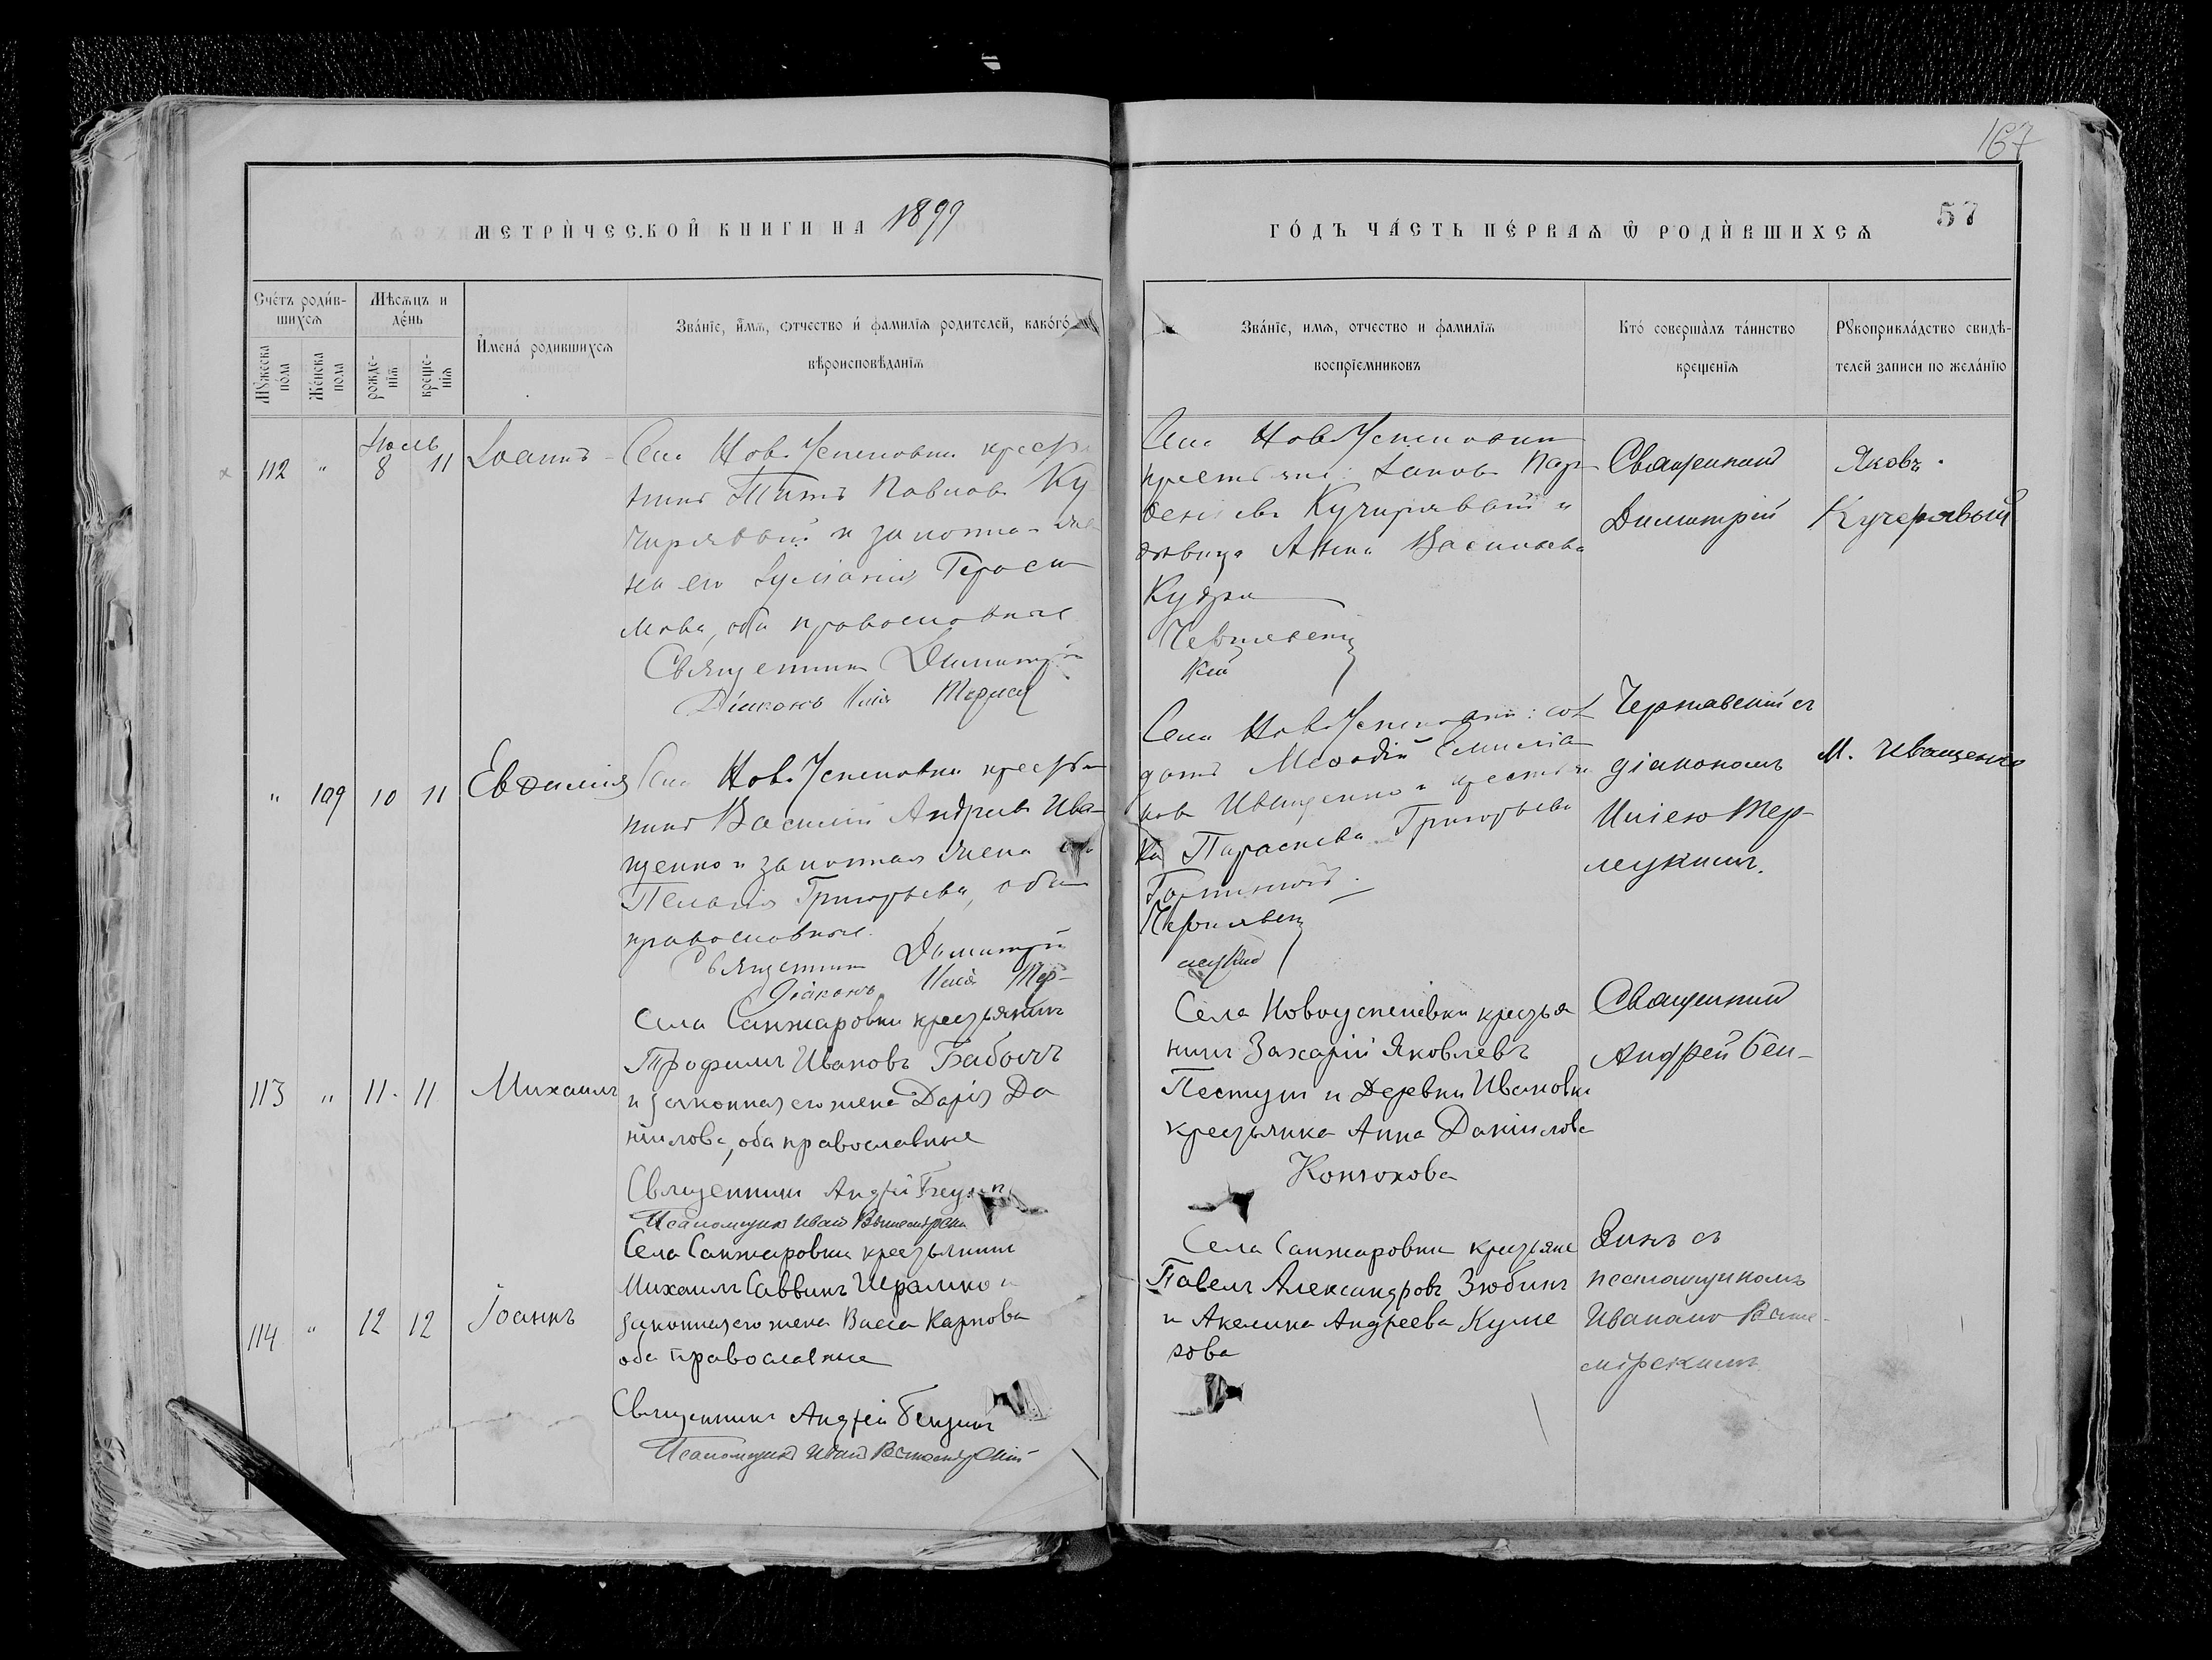 167
МЕТРИ́ЧЕСКОЙ КНИГИ НА 1899
ГО́ДЪ ЧА́СТЬ ПЕ́РВАЯ Ѿ РОДИ́ВШИХСЯ
57
Счéтъ роди́в-
шихся
Мѣсяцъ и
де́нь
Мꙋжеска
по́ла
Же́нска
пола
рожде-
нія
креще-
нія
Имена́ родившихся
Зва́ніе, имя, отчество и фамилія родителей, како́го
вѣроисповѣданія
Зва́ніе, имя, отчество и фамилія
воспріемниковъ
Кто́ соверша́лъ та́инство
крещенія
Рꙋкоприкла́дство свидѣ-
телей записи по жела́нію
Іюль
112 " 8 11
Іоаннъ
Села Ново Успеновки крестья
нинъ Титъ Павловъ Ку
чирявый и законная же
на его Герасi
мова, оба православные
Священникъ Димитрій
Діаконъ Илія
Села Ново Успеновки
крестьяне: Іаковъ Пар
ѳеніевъ Кучирявый и
дѣвица Анна Васильева
Кудря
Священникъ
Димитрій
Яковъ
Кучерявый
" 109 10 11
Евѳимія
Села Ново Успеновки крестья
нинъ Василій Андреевъ Ива
щенко и законная жена его
Пелагія Григорьева, оба
православные.
Священникъ Димитрій
Діаконъ Илія Тер-
Села Ново Успеновки: сол
датъ Меѳодій Емилiа
новъ Иващенко и крестьян
ка Параскева Григорьева
Чернявскій съ
діакономъ
Иліею Тер-
лецкимъ.
М. Иващенко
113 " 11 11
Михаилъ
Села Санжаровки крестьянинъ
Трофимъ Ивановъ Бабичъ
и законная его жена Дарія Да
ніилова, оба православные
Священникъ Андрей
Псаломщикъ Иванъ
Села Новоуспеновки крестья
нинъ Захарій Яковлевъ
Пестунъ и Деревни Ивановки
крестьянка Анна Даніилова
Конюхова
Священникъ
Андрей Бен-
114 " 12 12
Іоаннъ
Села Санжаровки крестьянинъ
Михаилъ Саввинъ и
законная его жена Васса Карпова
оба православные
Священникъ Андрей
Псаломщикъ Иванъ
Села Санжаровки крестьяне
Павелъ Александровъ Зюбинъ
и Акилина Андреева Куме
зова
съ
псаломщикомъ
Иваномъ